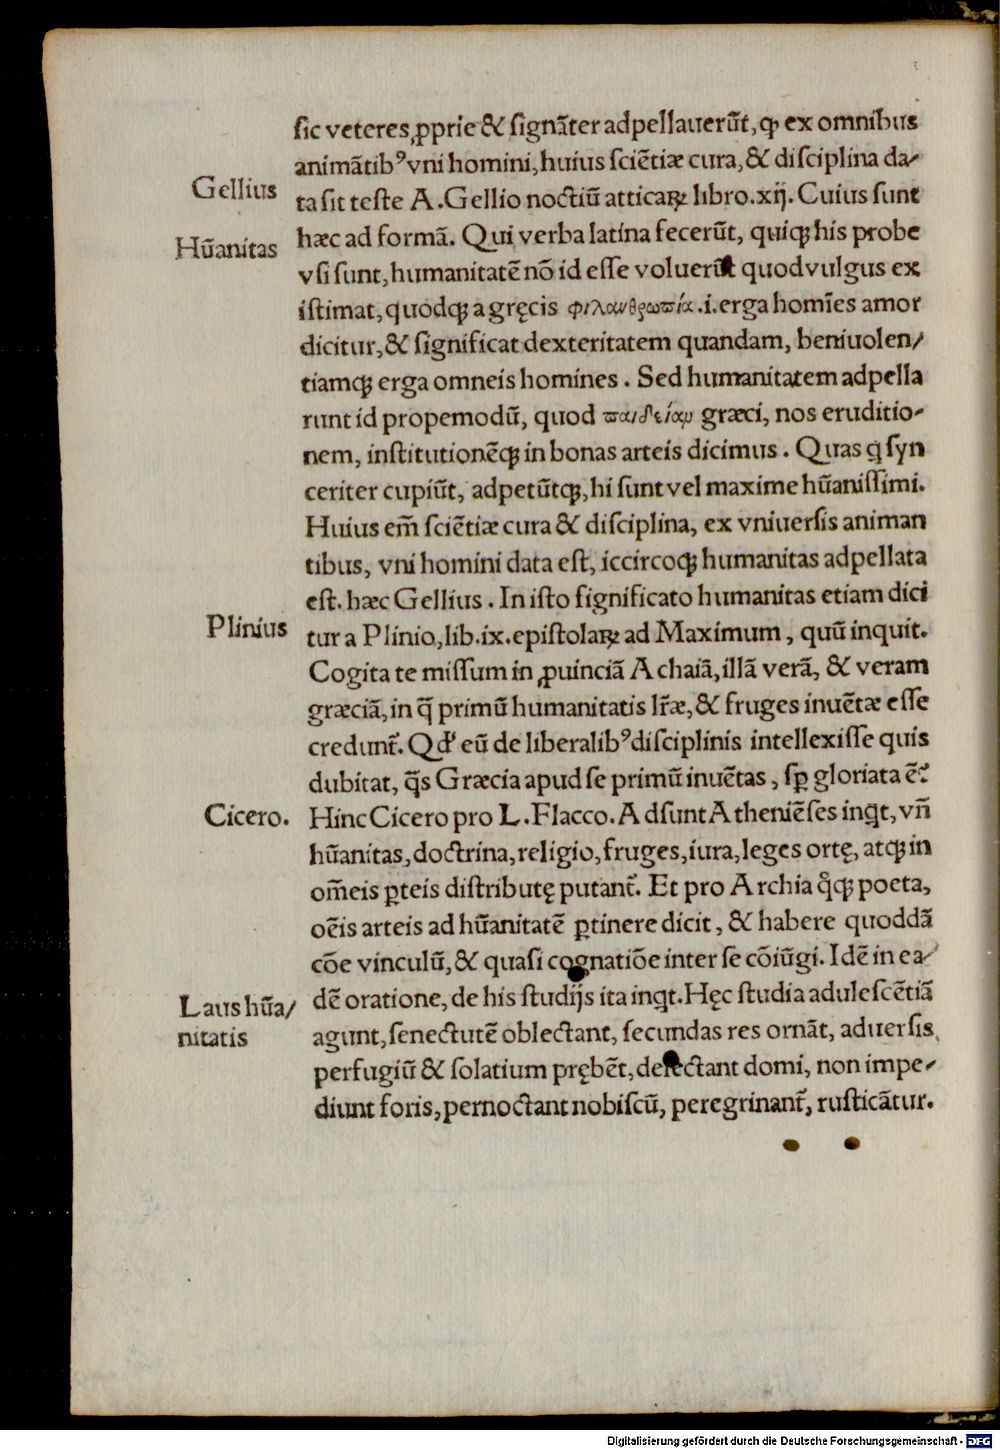 sic veteres ꝓprie & signãter adpellauerũt, ꝙ ex omnibus
animãtibꝰ vni homini, huius sciẽtiæ cura, & disciplina da⸗
Gellius
ta sit teste A. Gellio noctiũ atticaꝝ libro.xij. Cuius sunt
Hũanitas
hæc ad formã. Qui verba latina fecerũt, quiqꝫ his probe
vsi sunt, humanitatẽ nõ id esse voluerũt quod vulgus ex
istimat, quodqꝫ a gręcis φιλανθρωπία .i. erga homĩes amor
dicitur, & significat dexteritatem quandam, beniuolen/
tiamqꝫ erga omneis homines . Sed humanitatem adpella
runt id propemodũ, quod παιδείαν græci, nos eruditio⸗
nem, institutionẽqꝫ in bonas arteis dicimus . Quas q̃ syn
ceriter cupiũt, adpetũtqꝫ, hi sunt vel maxime hũanissimi.
Huius em̃ sciẽtiæ cura & disciplina, ex vniuersis animan
tibus, vni homini data est, iccircoqꝫ humanitas adpellata
est. hæc Gellius . In isto significato humanitas etiam dici
Plinius
tur a Plinio, lib.ix. epistolaꝝ ad Maximum , quũ inquit.
Cogita te missum in ꝓuinciã Achaiã, illã verã, & veram
græciã, in q̃ primũ humanitatis lr̃æ, & fruges inuẽtæ esse
credunt᷑. Qd' eũ de liberalibꝰ disciplinis intellexisse quis
dubitat, q̃s Græcia apud se primũ inuẽtas , sꝑ gloriata ẽ?
Cicero.
Hinc Cicero pro L. Flacco. Adsunt Atheniẽses inqt, vñ
hũanitas, doctrina, religio, fruges, iura, leges ortę, atqꝫ in
om̃eis ꝑteis distributę putant᷑. Et pro Archia qͦqꝫ poeta,
oẽis arteis ad hũanitatẽ ꝑtinere dicit, & habere quoddã
cõe vinculũ, & quasi cognatiõe inter se cõiũgi. Idẽ in ea⸗
Laus hũa/
nitatis
dẽ oratione, de his studijs ita inqt. Hęc studia adulescẽtiã
agunt, senectutẽ oblectant, secundas res ornãt, aduersis
perfugiũ & solatium prębẽt, delectant domi, non impe⸗
diunt foris, pernoctant nobiscũ, peregrinant᷑, rusticãtur.
Digitalisierung gefördert durch die Deutsche Forschungsgemeinschaft - DFG